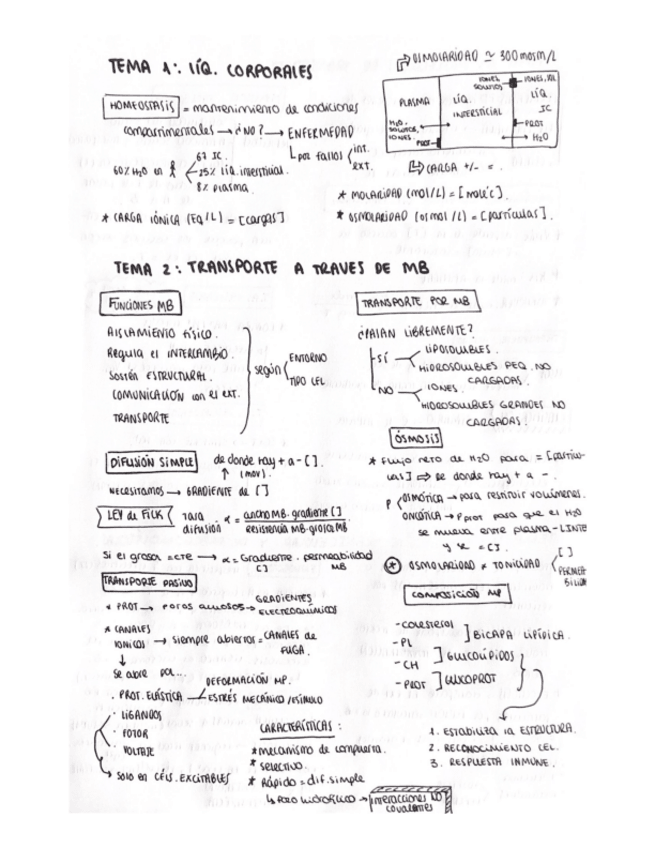 TEMA 1: LÍQ. CORPORALES
OSMOLARIDAD ≃ 300 mosm/L
HOMEOSTASIS = mantenimiento de condiciones
compartimentales → ¿NO? → ENFERMEDAD
por fallos int.
ext.
60% H2O en
67 IC.
25% Líq. intersticial.
8% plasma.
* CARGA IÓNICA (EQ/L) = [cargas]
PLASMA
H2O. SOLUTOS, IONES.
PROT
LÍQ. INTERSTICIAL
IONES, SOLUTOS
LÍQ. IC
PROT
H2O
CARGA +/- = .
* MOLARIDAD (mol/L) = [moléc].
* OSMOLARIDAD (osmol/L) = [partículas].
TEMA 2: TRANSPORTE A TRAVES DE MB
FUNCIONES MB
AISLAMIENTO físico.
Regula el INTERCAMBIO.
Sostén ESTRUCTURAL.
COMUNICACIÓN con el ext.
TRANSPORTE
según
ENTORNO
TIPO CEL
TRANSPORTE POR MB
¿PASAN LIBREMENTE?
SÍ
LIPOSOLUBLES.
HIDROSOLUBLES PEQ. NO CARGADAS.
NO
IONES.
HIDROSOLUBLES GRANDES NO CARGADAS!
DIFUSIÓN SIMPLE de donde hay + a - [ ].
↑ (mov).
NECESITAMOS → GRADIENTE de [ ]
LEY de FICK tasa difusión. α = ancho MB. gradiente [ ]
resistencia MB. grosor MB
Si el grosor = cte → α = Gradiente [ ]. permeabilidad MB
ÓSMOSIS
* Flujo neto de H2O para = [partículas] ⇒ de donde hay + a -.
P OSMÓTICA → para restituir volúmenes.
ONCÓTICA → Pprot para que el H2O
se mueva entre plasma - L INTE
y se = [ ].
* OSMOLARIDAD ≠ TONICIDAD
[ ]
TRANSPORTE PASIVO
* PROT → poros acuosos → GRADIENTES ELECTROQUÍMICOS
* CANALES IONICOS → siempre abiertos = CANALES de FUGA.
↓
Se abre por...
· PROT. ELÁSTICA
DEFORMACIÓN MP.
ESTRÉS MECÁNICO/ESTÍMULO
· LIGANDOS
· FOTOR
· VOLTAJE
SOLO en CÉLS. EXCITABLES
CARACTERÍSTICAS:
* mecanismo de compuerta.
* selectivo.
* Rápido = dif. simple
↳ poro hidrofílico → interacciones NO covalentes
COMPOSICIÓN MP
- COLESTEROL
- PL
] BICAPA LIPÍDICA.
- CH
] GLUCOLÍPIDOS
- PROT
] GLUCOPROT
1. ESTABILIZA la ESTRUCTURA.
2. RECONOCIMIENTO CEL.
3. RESPUESTA INMUNE.